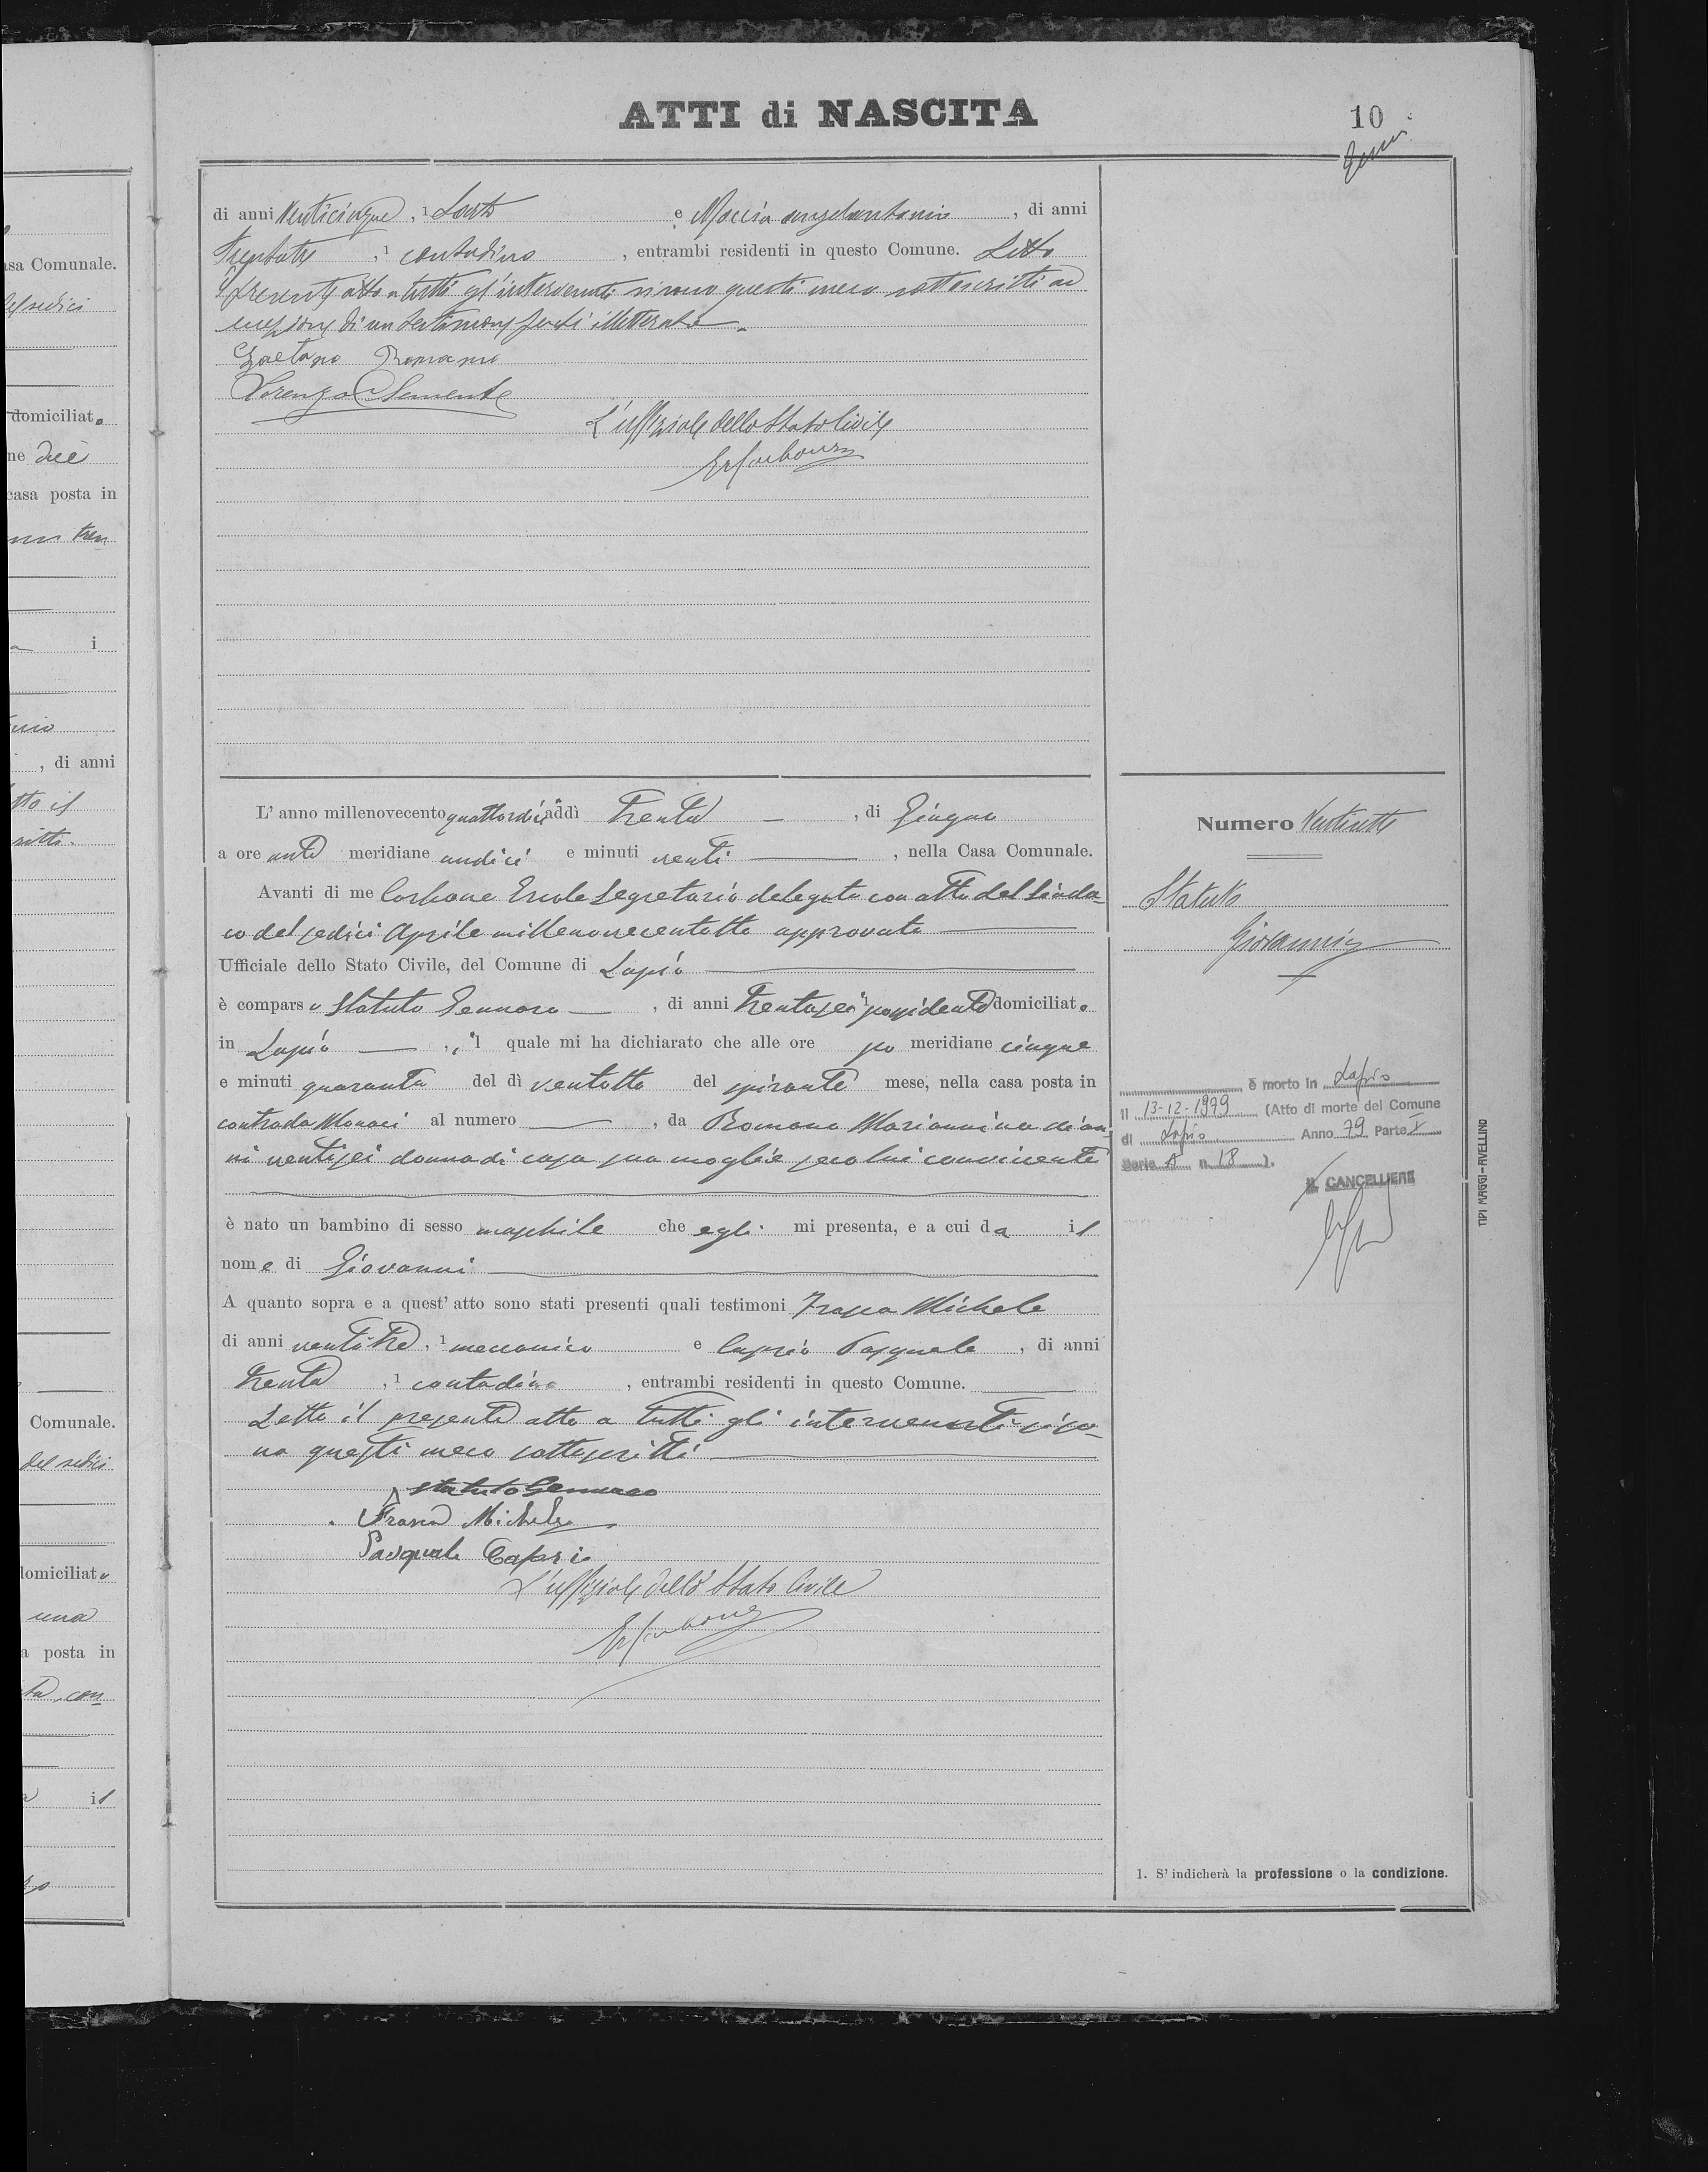 ATTI di NASCITA
10
di anni Venticinque, 1 Sarto e Maccia Angelantonio, di anni
Trentatre, 1 contadino, entrambi residenti in questo Comune. Letto
il presente atto a tutti gl'intervenuti si sono questi meco sottoscritti ad
eccezione di un testimone perché illetterato.
Gaetano Romano
Lorenzo Clemente
L'uffiziale dello Stato Civile
ErCarbone
L'anno millenovecento quattordici addì Trenta, di Giugno
a ore ante meridiane undici e minuti venti, nella Casa Comunale.
Avanti di me Carbone Ercole Segretario delegato con atto del Sinda-
co del sedici Aprile millenovecentotto approvato
Ufficiale dello Stato Civile, del Comune di Lapio
è comparso Statuto Gennaro, di anni Trentasei, 1 possidente domiciliato
in Lapio, il quale mi ha dichiarato che alle ore po meridiane cinque
e minuti quaranta del dì ventotto del spirante mese, nella casa posta in
contrada Monaci al numero, da Romano Mariannina di an-
ni ventisei donna di casa sua moglie seco lui convivente
è nato un bambino di sesso maschile che egli mi presenta, e a cui da il
nome di Giovanni
A quanto sopra e a quest'atto sono stati presenti quali testimoni Frasca Michele
di anni ventitre, 1 meccanico e Caprio Pasquale, di anni
Trenta, 1 contadino, entrambi residenti in questo Comune.
Letto il presente atto a tutti gli intervenuti si so-
no questi meco sottoscritti
Statuto Gennaro
Frasca Michele
Pasquale Caprio
L'uffiziale dello Stato Civile
ErCarbone
Numero Ventisette
Statuto
Giovanni
è morto in Lapio
il 13-12-1979 (Atto di morte del Comune
di Lapio Anno 79 Parte I
Serie A n. 18 ).
IL CANCELLIERE
1. S'indicherà la professione o la condizione.
TIPI MAGGI-AVELLINO
asa Comunale.
domiciliato
ne due
casa posta in
i
, di anni
Comunale.
del sedici
domiciliato
una
a posta in
il